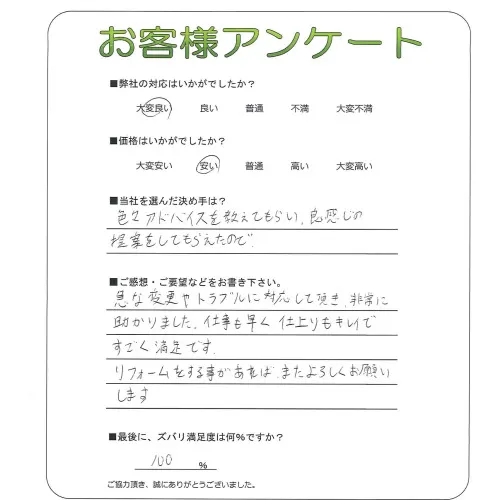 お客様アンケート
■弊社の対応はいかがでしたか？
大変良い 良い 普通 不満 大変不満
■価格はいかがでしたか？
大変安い 安い 普通 高い 大変高い
■当社を選んだ決め手は？
色々アドバイスを教えてもらい、良い感じの
提案をしてもらえたので
■ご感想・ご要望などをお書き下さい。
急な変更やトラブルに対応して頂き、非常に
助かりました。仕事も早く仕上りもキレイで
すごく満足です。
リフォームをする事があれば、またよろしくお願い
します
■最後に、ズバリ満足度は何%ですか？
100 %
ご協力頂き、誠にありがとうございました。